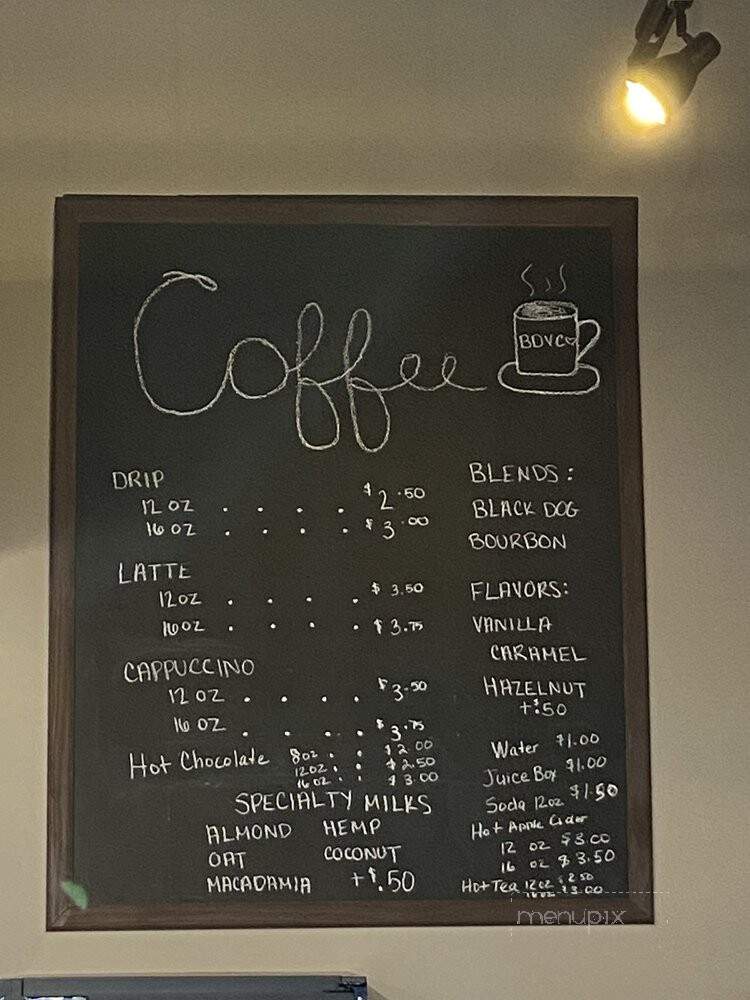 Coffee
BDVC
DRIP
12 OZ . . . . $2.50
16 OZ . . . . $3.00
LATTE
12 OZ . . . . $3.50
16 OZ . . . . $3.75
CAPPUCCINO
12 OZ . . . . $3.50
16 OZ . . . . $3.75
Hot Chocolate 8 oz . . $2.00
12 oz . . $2.50
16 oz . . $3.00
SPECIALTY MILKS
ALMOND HEMP
OAT COCONUT
MACADAMIA +$.50
BLENDS:
BLACK DOG
BOURBON
FLAVORS:
VANILLA
CARAMEL
HAZELNUT
+$.50
Water $1.00
Juice Box $1.00
Soda 12oz $1.50
Hot Apple Cider
12 OZ $3.00
16 OZ $3.50
Hot Tea 12oz $2.50
16oz $3.00
menupix